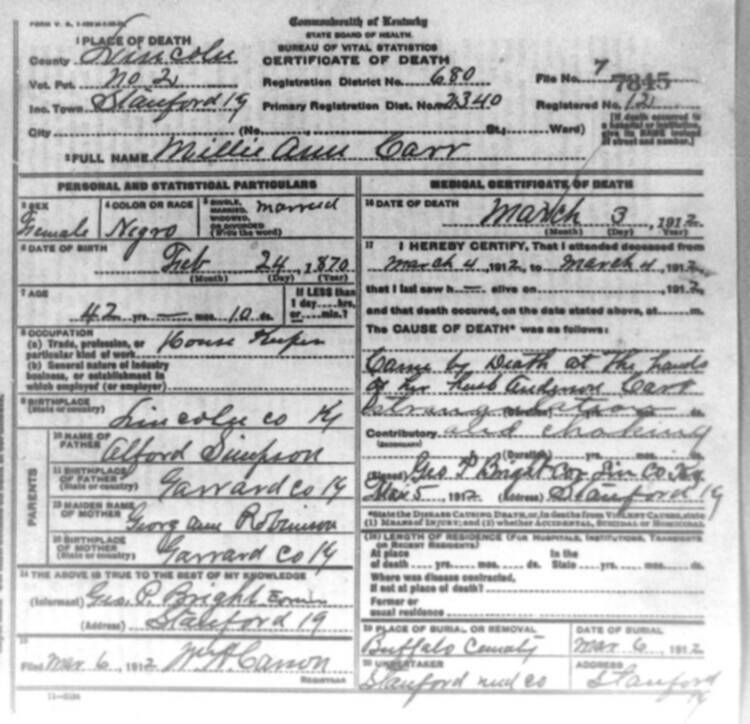 Commonwealth of Kentucky
STATE BOARD OF HEALTH.
BUREAU OF VITAL STATISTICS
CERTIFICATE OF DEATH
1 PLACE OF DEATH
County Lincoln
Vot. Pct. No. 2
Inc. Town Stanford Ky
City (No. , St.; Ward)
Registration District No. 680
Primary Registration Dist. No. 2340
File No. 7 7845
Registered No. 12
[If death occurred in a hospital or institution, give its NAME instead of street and number.]
2 FULL NAME Millie Ann Carr
PERSONAL AND STATISTICAL PARTICULARS
3 SEX Female
4 COLOR OR RACE Negro
5 SINGLE, MARRIED, WIDOWED, OR DIVORCED (Write the word) married
6 DATE OF BIRTH
Feb 24, 1870
(Month) (Day) (Year)
7 AGE
42 yrs. — mos. 10 ds.
If LESS than 1 day....hrs. or....min.?
8 OCCUPATION
(a) Trade, profession, or particular kind of work House Keeper
(b) General nature of industry business, or establishment in which employed (or employer)
9 BIRTHPLACE (State or country) Lincoln co Ky
PARENTS
10 NAME OF FATHER Alford Simpson
11 BIRTHPLACE OF FATHER (State or country) Garrard co Ky
12 MAIDEN NAME OF MOTHER Georg Ann Robinson
13 BIRTHPLACE OF MOTHER (State or country) Garrard co Ky
14 THE ABOVE IS TRUE TO THE BEST OF MY KNOWLEDGE
(Informant) Geo. P. Bright
(Address) Stanford Ky
15
Filed Mar 6, 1912 W. H. Carson
REGISTRAR
MEDICAL CERTIFICATE OF DEATH
16 DATE OF DEATH
March 3, 1912
(Month) (Day) (Year)
17 I HEREBY CERTIFY, That I attended deceased from
march 4, 1912, to march 4, 1912,
that I last saw h— alive on , 1912,
and that death occured, on the date stated above, at m.
The CAUSE OF DEATH* was as follows:
Came by Death at the hands
of her husb Anderson Carr
Contributory and choking
(SECONDARY)
(Duration) yrs. mos. ds.
(Signed) Geo P Bright Cor Lin Co Ky
Mar 5, 1912 (Address) Stanford Ky
*State the DISEASE CAUSING DEATH, or, in deaths from VIOLENT CAUSES, state
(1) MEANS OF INJURY; and (2) whether ACCIDENTAL, SUICIDAL or HOMICIDAL
18 LENGTH OF RESIDENCE (FOR HOSPITALS, INSTITUTIONS, TRANSIENTS OR RECENT RESIDENTS)
At place of death yrs. mos. ds. In the State yrs. mos. ds.
Where was disease contracted, if not at place of death?
Former or usual residence
19 PLACE OF BURIAL OR REMOVAL
DATE OF BURIAL
Buffalo
Mar 6, 1912
20 UNDERTAKER
ADDRESS
Stanford co
Stanford Ky